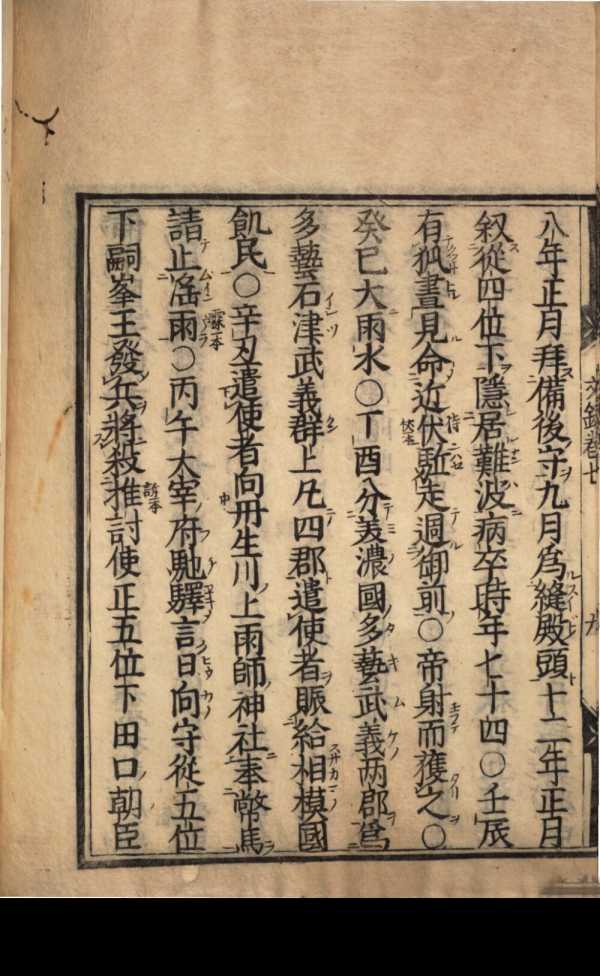 八年正月拜備後守九月爲縫殿頭十二年正月
叙從四位下隱居難波病卒時年七十四〇壬辰
有狐晝見命近伏駈走過御前〇帝射而獲之〇
癸巳大雨水〇丁酉分美濃國多藝武義两郡爲
多藝石津武義群上凡四郡遣使者賑給相模國
飢民〇辛丑遣使者向丹生川上雨師神社奉幣馬
請止滛雨〇丙午太宰府馳驛言日向守從五位
下嗣峯王發兵將殺推討使正五位下田口朝臣